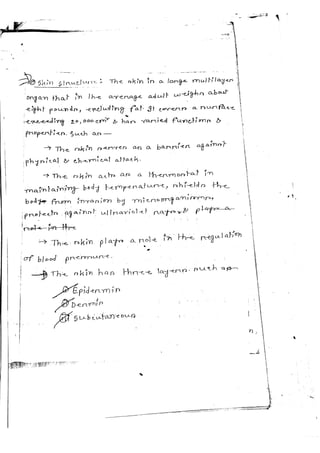 Skin structure : The skin in a large multilayer
organ that in the average adult weighs about
eight pounds, excluding fat. It covers a surface
exceeding 20,000 cm² & has varied function &
properties. Such as —
→ The skin serves as a barrier against
physical & chemical attack.
→ The skin acts as a thermostat in
maintaining body temperature, shields the
body from invasion by microorganisms,
protects against ultraviolet rays & plays a
role in the
→ The skin plays a role in the regulation
of blood pressure.
→ The skin has three layers. such as
Epidermis
Dermis
Subcutaneous